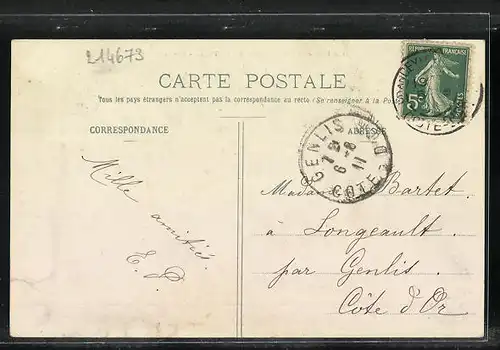 214673
CARTE POSTALE
Tous les pays étrangers n'acceptent pas la correspondance au recto (Se renseigner à la Poste)
CORRESPONDANCE
ADRESSE
Mille
amitiés
E. P.
Madame Bartet
à Longeault
par Genlis
Côte d'Or
GENLIS
6-8
11
COTE D'OR
RÉPUBLIQUE FRANÇAISE
5c
POSTES